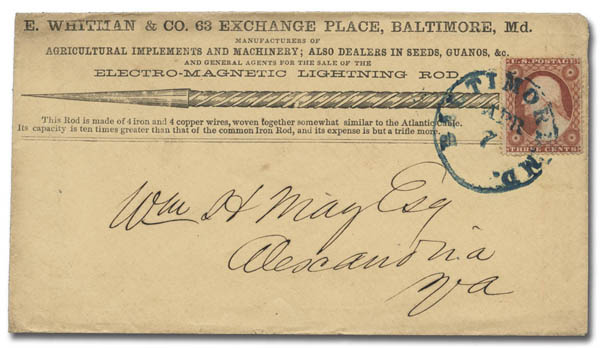 E. WHITMAN & CO. 63 EXCHANGE PLACE, BALTIMORE, Md.
MANUFACTURERS OF
AGRICULTURAL IMPLEMENTS AND MACHINERY; ALSO DEALERS IN SEEDS, GUANOS, &c.
AND GENERAL AGENTS FOR THE SALE OF THE
ELECTRO-MAGNETIC LIGHTNING ROD.
This Rod is made of 4 iron and 4 copper wires, woven together somewhat similar to the Atlantic Cable.
Its capacity is ten times greater than that of the common Iron Rod, and its expense is but a trifle more.
U.S. POSTAGE
THREE CENTS
BALTIMORE MD.
APR
7
Wm H May Esq
Alexandria
Va